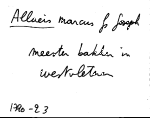 Allueis marcus fs Joseph
meester bakker in
westvleteren
1780-23